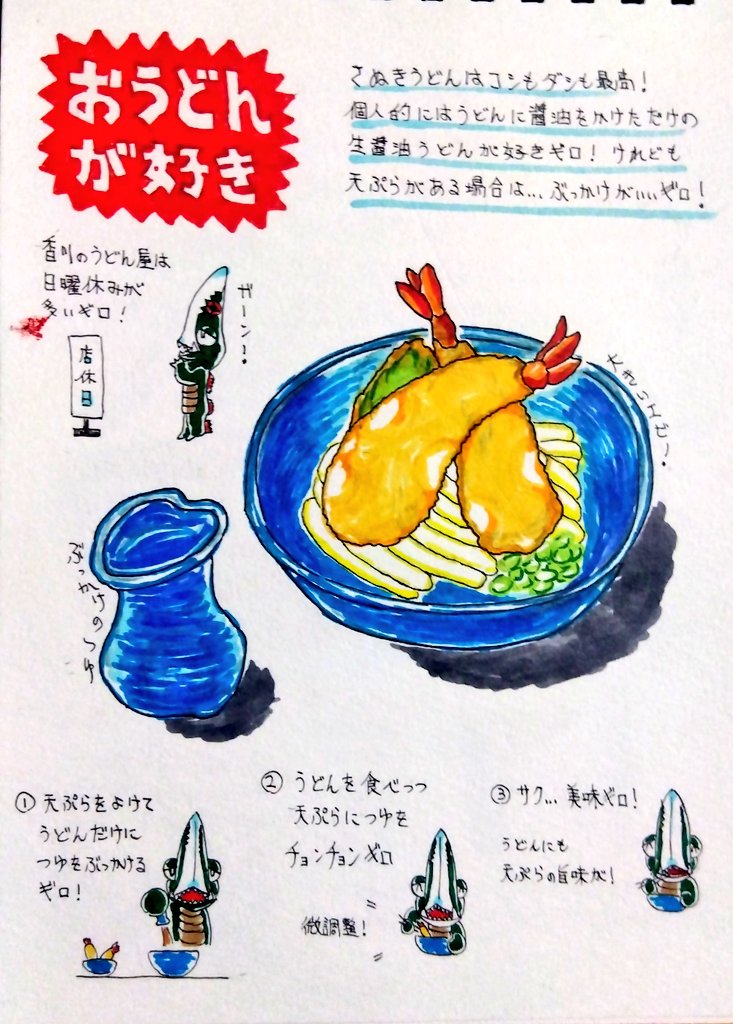 おうどん
が好き
さぬきうどんはコシもダシも最高!
個人的にはうどんに醤油をかけただけの
生醤油うどんが好きギロ! けれども
天ぷらがある場合は...ぶっかけがいいギロ!
香川のうどん屋は
日曜休みが
多いギロ!
ガーン!
店休日
ぶっかけのつゆ
① 天ぷらをよけて
うどんだけに
つゆをぶっかける
ギロ!
② うどんを食べつつ
天ぷらにつゆを
チョンチョンギロ
微調整!
③ サク...美味ギロ!
うどんにも
天ぷらの旨味が!